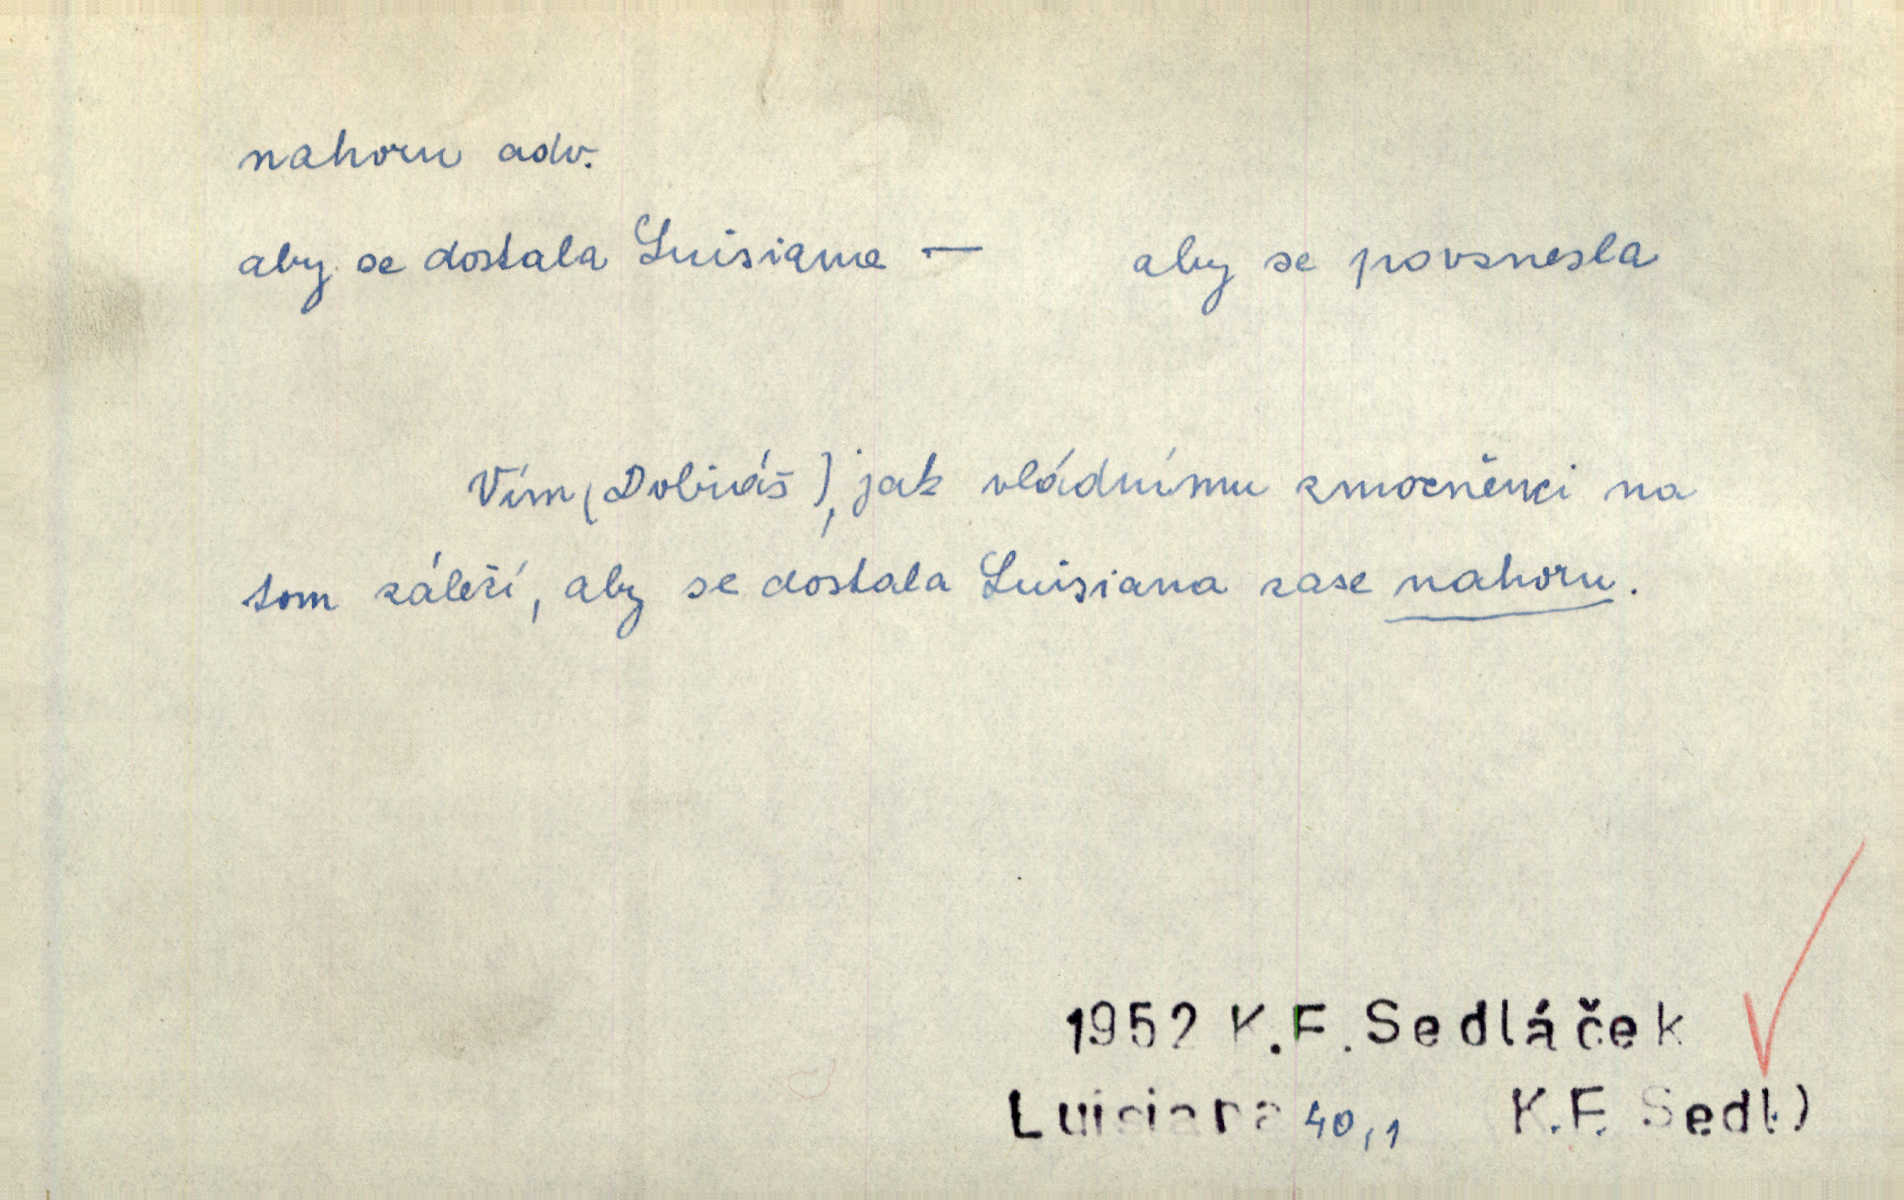 nahoru adv.
aby se dostala Luisiana — aby se povznesla
Vím (Dobiáš), jak vládnímu zmocněnci na
tom záleží, aby se dostala Luisiana zase nahoru.
1952 K.F. Sedláček
Luisiana 40,1 K.F. Sedl.)